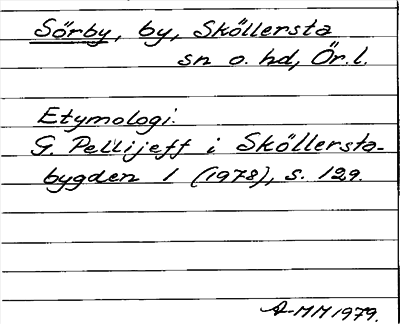 Sörby, by, Sköllersta
sn o. hd, Ör. l.
Etymologi:
G. Pellijeff i Sköllersta-
bygden 1 (1978), s. 129.
A-MM 1979.